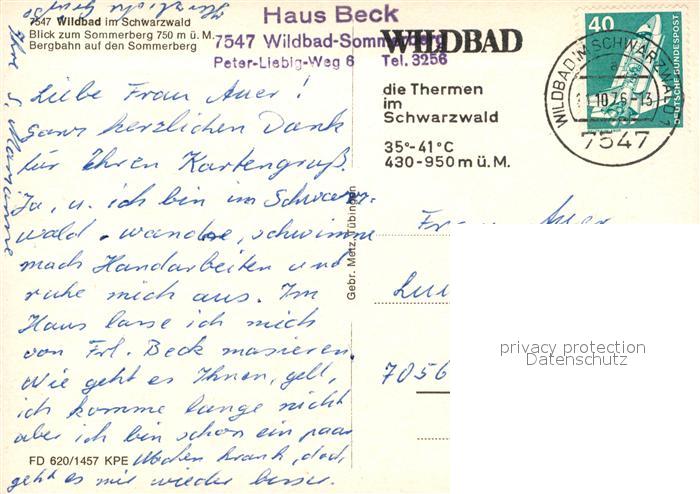 7547 Wildbad im Schwarzwald
Blick zum Sommerberg 750 m ü. M.
Bergbahn auf den Sommerberg
Haus Beck
7547 Wildbad-Sommerberg
Peter-Liebig-Weg 6 Tel. 3256
WILDBAD
die Thermen
im
Schwarzwald
35°-41°C
430-950 m ü. M.
40
DEUTSCHE BUNDESPOST
WILDBAD IM SCHWARZWALD 1
10.76-13
7547
Liebe Frau Auer!
Ganz herzlichen Dank
für Ihren Kartengruß.
Ja, u. ich bin im Schwarz-
wald - wandre, schwimme
mach Handarbeiten und
ruhe mich aus. Im
Haus lasse ich mich
von Frl. Beck masieren.
Wie geht es Ihnen, gell,
ich komme lange nicht
aber ich bin schon ein paar
Wochen krank, doch
geht es mir wieder besser.
Ihre S. Marianne
Frau Auer
7056
Gebr. Metz, Tübingen
FD 620/1457 KPE
privacy protection
Datenschutz